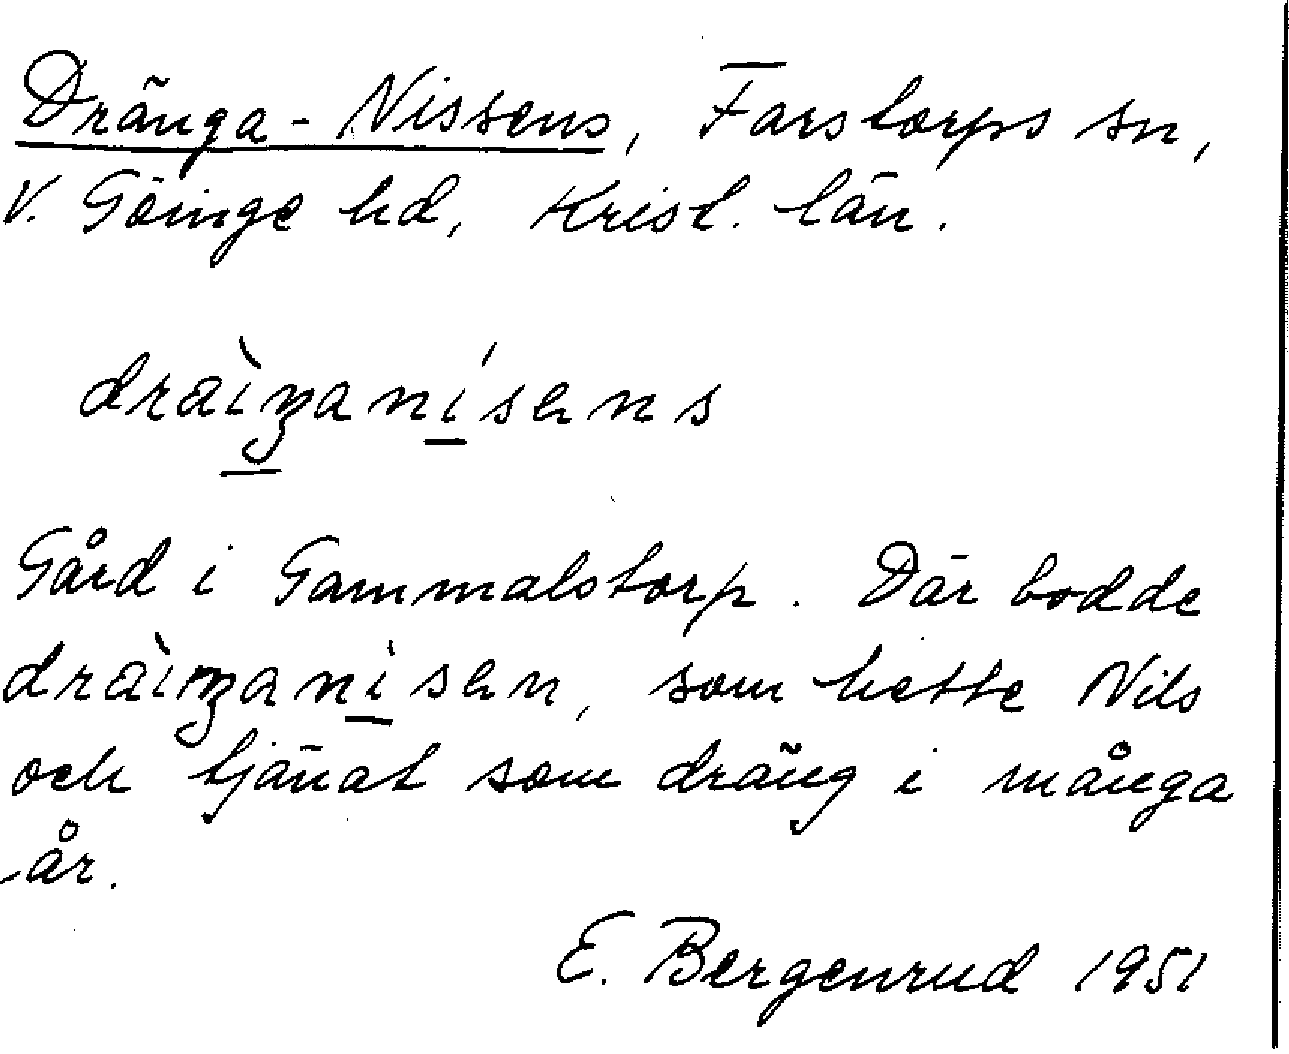 Dränga-Nissens, Farstorps sn,
V. Göinge hd, Krist. län.
draìŋanísens
Gård i Gammalstorp. Där bodde
draìŋanisen, som hette Nils
och tjänat som dräng i många
år.
E. Bergenrud 1951